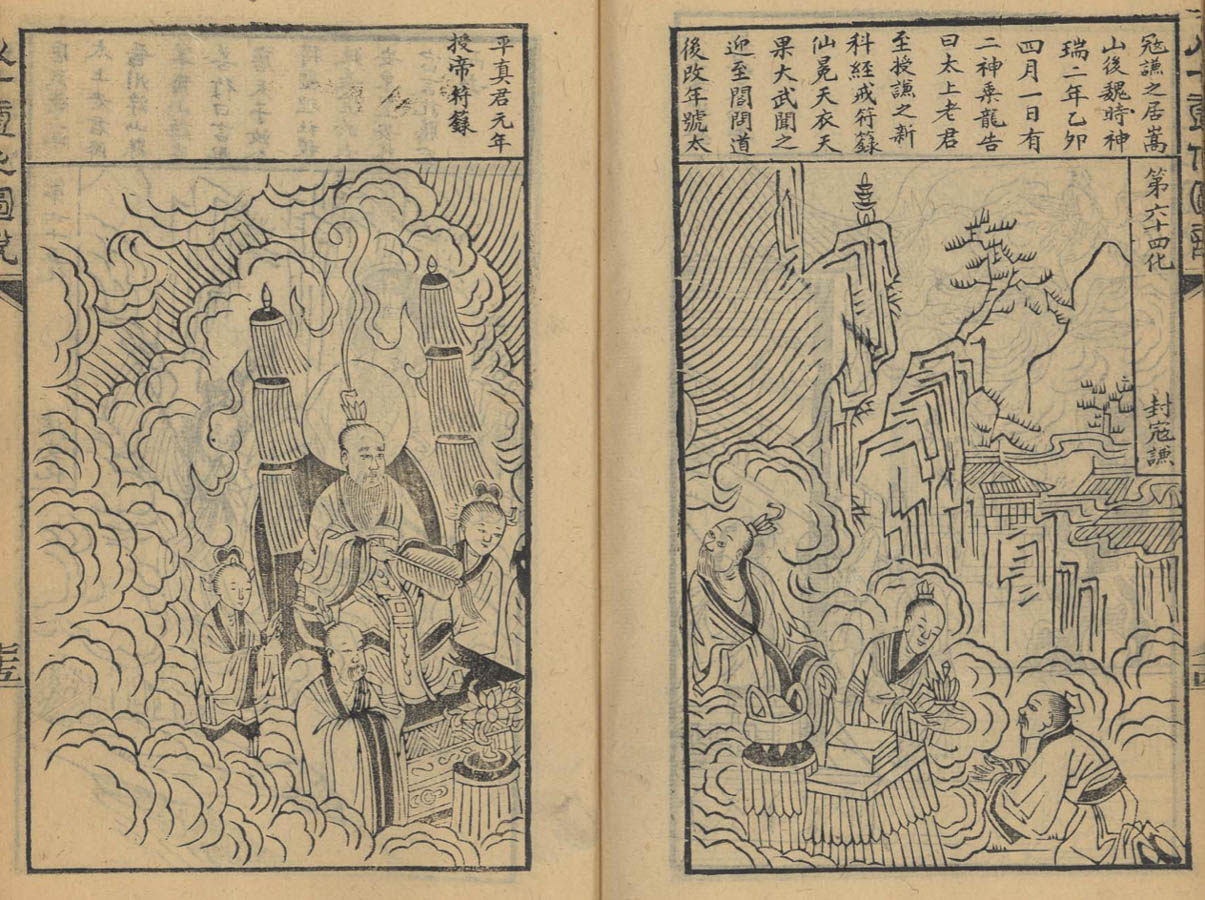 寇謙之居嵩
山後魏時神
瑞二年乙卯
四月一日有
二神乗龍告
曰太上老君
至授謙之新
科經戒符籙
仙晃天衣天
果大武聞之
迎至闇問道
後改年號太
第六十四化
封寇謙
平真君元年
授帝符籙